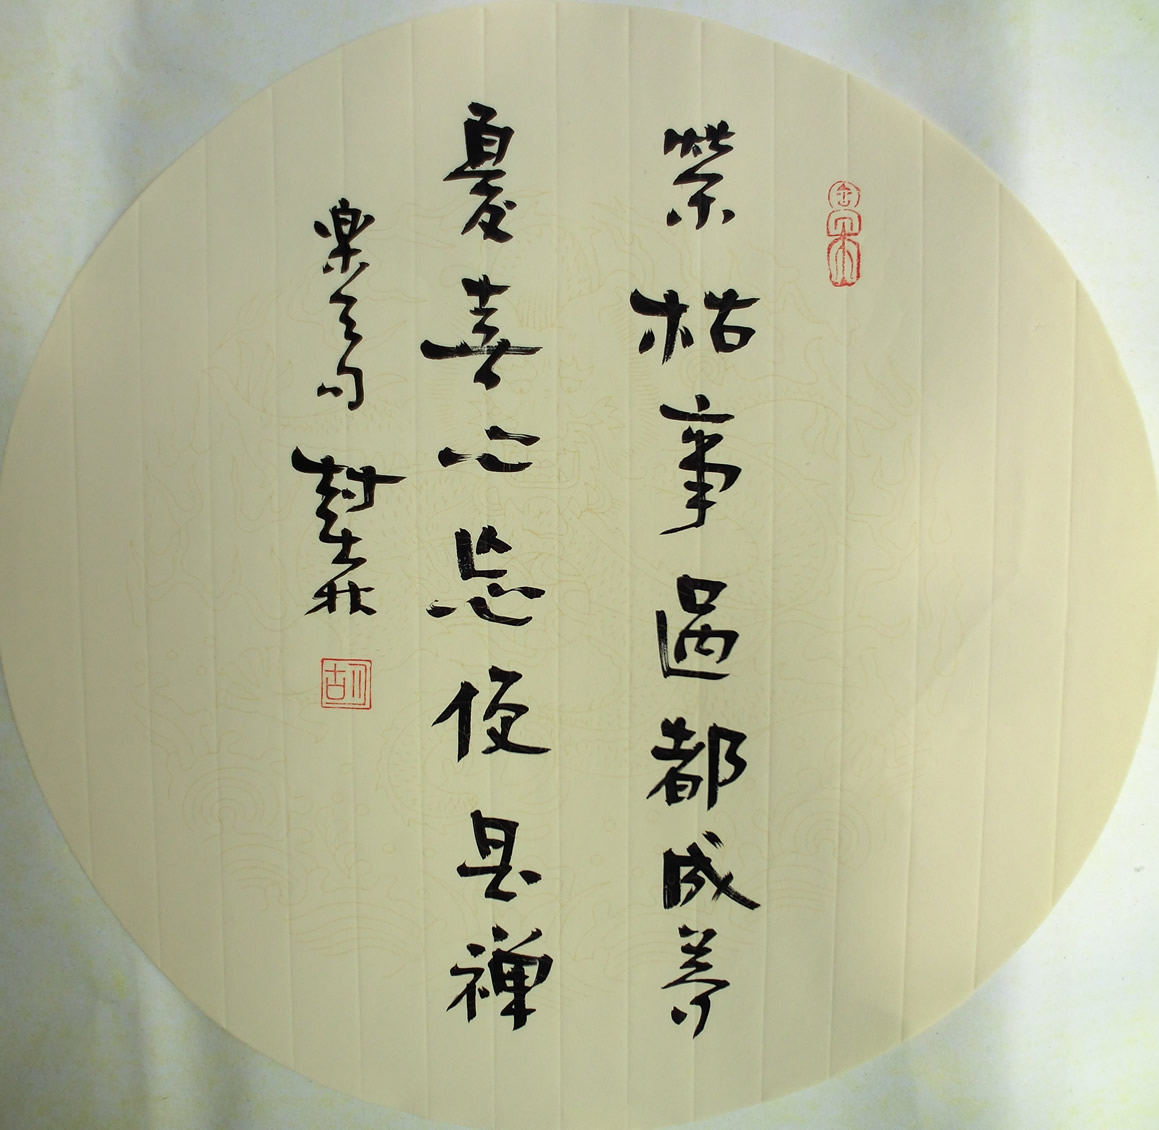 榮枯事過都成夢
憂喜心忘便是禪
樂天句